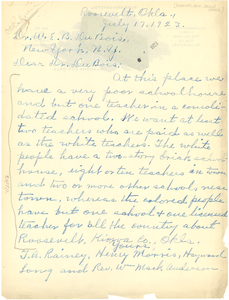 Roosevelt, Okla.,
July 17, 1923.
Dr. W. E. B. Du Bois,
New York, N.Y.
Dear Dr. Du Bois:
At this place we
have a very poor school house
and but one teacher in a consoli-
dated school. We want at least
two teachers who are paid as well
as the white teachers. The white
people have a two-story brick school
house, eight or ten teachers in town
and two or more other schools near
town, whereas the colored people
have but one school & one licensed
teacher for all the country about
Roosevelt, Kiowa Co., Okla.
Yours,
T. A. Rainey, Henry Morris, Haywood
Long and Rev. Wm Mack Anderson